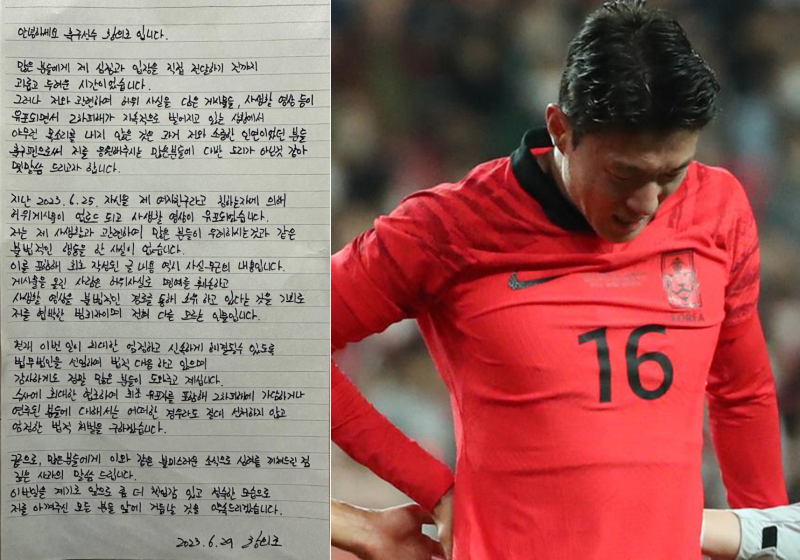 안녕하세요 축구선수 황의조 입니다.
많은 분들에게 제 심정과 입장을 직접 전달하기 전까지
괴롭고 두려운 시간이었습니다.
그러나 저와 관련하여 허위 사실을 담은 게시물들, 사생활 영상 등이
유포되면서 2차피해가 지속적으로 벌어지고 있는 상황에서
아무런 목소리를 내지 않은 것은 과거 저와 소중한 인연이었던 분들
축구팬으로써 저를 응원해주시는 많은분들에 대한 도리가 아닌것 같아
몇말씀 드리고자 합니다.
지난 2023. 6. 25. 자신을 제 여자친구라고 칭하는자에 의해
허위게시물이 업로드 되고 사생활 영상이 유포되었습니다.
저는 제 사생활과 관련하여 많은 분들이 우려하시는것과 같은
불법적인 행동을 한 사실이 없습니다.
이를 포함해 최초 작성된 글 내용 역시 사실 무근의 내용입니다.
게시물을 올린 사람은 허위사실로 명예를 훼손하고
사생활 영상을 불법적인 경로를 통해 소유 하고 있다는 것을 기회로
저를 협박한 범죄자이며 전혀 다를 모르는 인물입니다.
현재 이번 일이 최대한 엄정하고 신속하게 해결될수 있도록
법무법인을 선임하여 법적 대응 하고 있으며
감사하게도 정말 많은 분들이 도와주고 계십니다.
수사에 최대한 협조하여 최초 유포자를 포함해 2차피해에 가담하거나
연루된 분들에 대해서는 어떠한 경우라도 절대 선처하지 않고
엄정한 법적 처벌을 구하겠습니다.
끝으로, 많은분들에게 이와 같은 불미스러운 소식으로 심려를 끼쳐드린 점
깊은 사과의 말씀 드립니다.
이번일을 계기로 앞으로 좀 더 책임감 있고 성숙한 모습으로
저를 아껴주신 모든 분들 앞에 거듭날 것을 약속드리겠습니다.
2023. 6. 29 황의조
16
KOREA